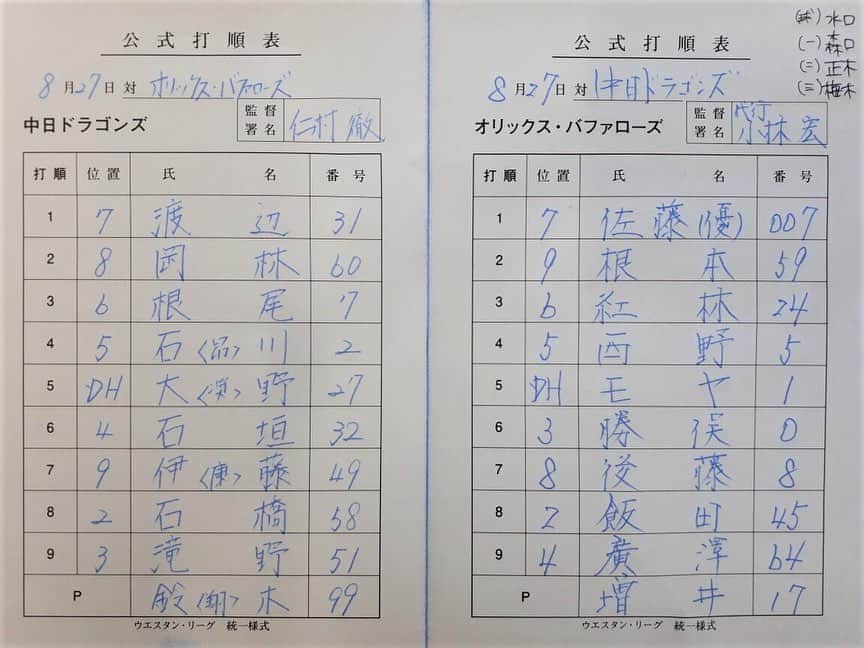 公式打順表
8月27日 対 オリックス・バファローズ
中日ドラゴンズ 監督署名 仁村 徹
打順 位置 氏名 番号
1 7 渡辺 31
2 8 岡林 60
3 6 根尾 7
4 5 石〈昂〉川 2
5 DH 大〈奨〉野 27
6 4 石垣 32
7 9 伊〈康〉藤 49
8 2 石橋 58
9 3 滝野 51
P 鈴〈翔〉木 99
ウエスタン・リーグ 統一様式
(球) 水口
(一) 森口
(二) 正木
(三) 梅木
公式打順表
8月27日 対 中日ドラゴンズ
オリックス・バファローズ 監督署名 代行 小林 宏
打順 位置 氏名 番号
1 7 佐藤(優) 007
2 9 根本 59
3 6 紅林 24
4 5 西野 5
5 DH モヤ 1
6 3 勝俣 0
7 8 後藤 8
8 2 飯田 45
9 4 廣澤 64
P 増井 17
ウエスタン・リーグ 統一様式